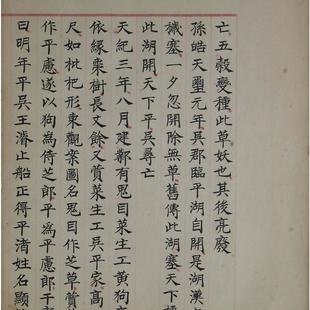 亡五穀變種此草妖也其後亮廢
孫皓天璽元年吳郡臨平湖自開是湖漢
穢塞一夕忽開除無草舊傳此湖塞天下
此湖開天下平吳尋亡
天紀三年八月建鄴有鬼目菜生工黃狗
依緣棗樹長丈餘又蕒菜生工吳平家高
尺如枇杷形東觀案圖名鬼目作芝草蕒
作平慮遂以狗為侍芝郎平為平慮郎干
曰明年平吳王濬止船正得平渚姓名顯